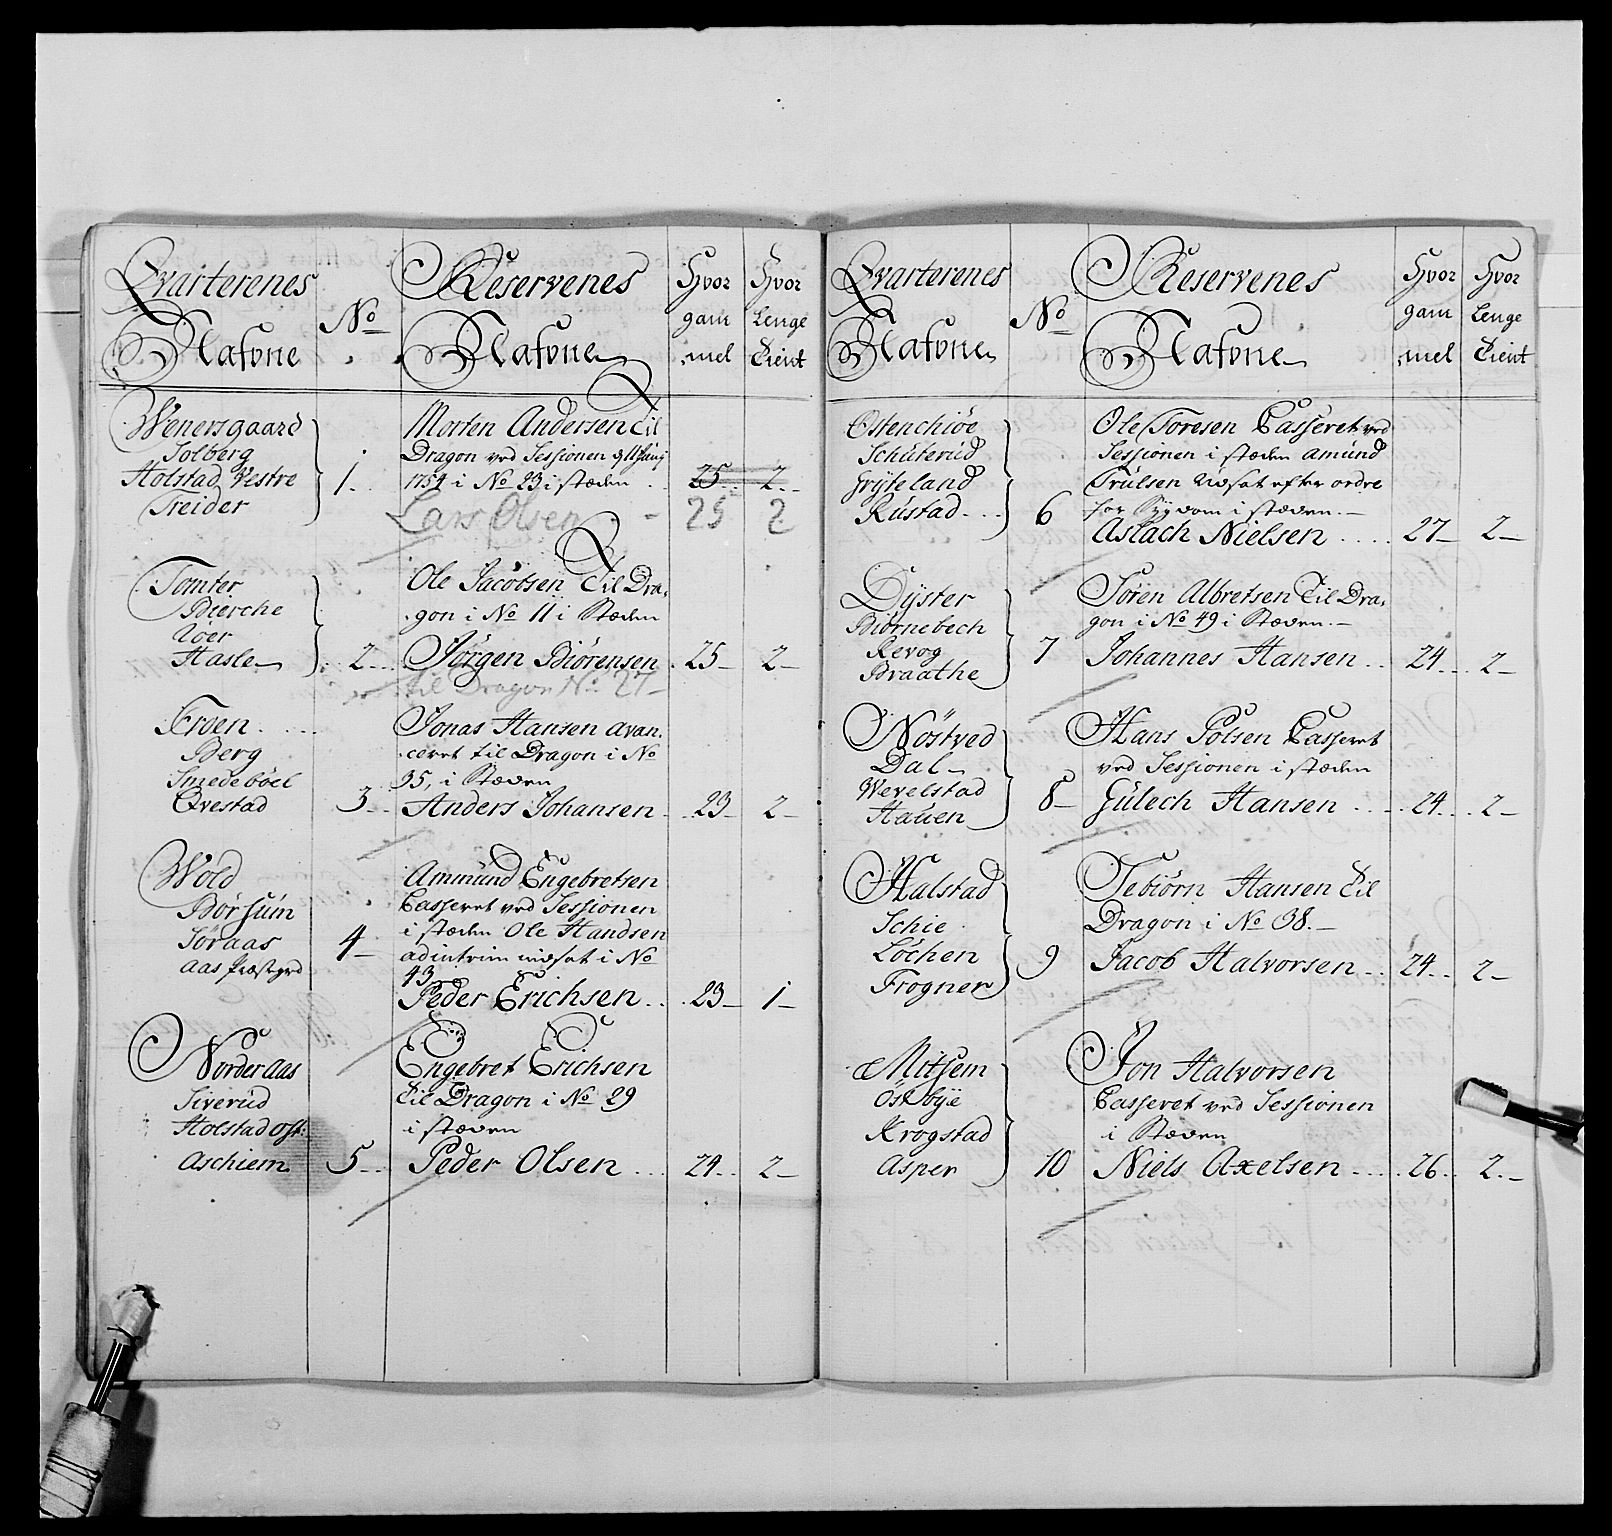 Qvarterenes Nafvne
No
Reservenes Nafvne
Hvor gammel
Hvor Lenge Tient
Wenersgaard
Solberg
Holstad Vestre
Treider
1
Morten Andersen Til
Dragon ved Sessionen
1754 i No 23 i stæden
25 2
Lars Olsen 25 2
Tomter
Bierche
Hasle
2
Ole Jacobsen Til Dra-
gon i No 11 i Stæden
Jørgen Biørensen 25 2
til Dragon No 27
Froen
Berg
Smedebøel
Qvestad
3
Jonas Hansen avan-
ceret til Dragon i No
35, i Stæden
Anders Johansen 23 2
Wold
Børsum
Søraas
Aas Præstgrd
4
Ammund Engebretsen
Casseret ved Sessionen
i stæden Ole Handsen
adintrim indsat i No
43
Peder Erichsen 23 1
Norderaas
Siverud
Holstad ost:
Aschiem
5
Engebret Erichsen
til Dragon i No 29
i stæden
Peder Olsen 24 2
Qvarterenes Nafvne
No
Reservenes Nafvne
Hvor gammel
Hvor Lenge Tient
Østenchiøe
Schuterud
Gryteland
Rustad
6
Ole Toresen Casseret ved
Sessionen i stæden amund
Trulsen udsat efter ordre
for Sygdom i stæden
Aslach Nielsen 27 2
Dyster
Biørnebech
Revog
Braathe
7
Søren Albretsen Til Dra-
gon i No 49 i Stæden
Johannes Hansen 24 2
Nøstved
Dal
Wevelstad
Hauen
8
Hans Polsen Casseret
ved Sessionen i stæden
Gulech Hansen 24 2
Halstad
Schie
Løchen
Frogner
9
Tebiørn Hansen til
Dragon i No 38
Jacob Halvorsen 24 2
Mitsem
Østbye
Krogstad
Asper
10
Jon Halvorsen
Casseret ved Sessionen
i Stæden
Niels Axelsen 26 2